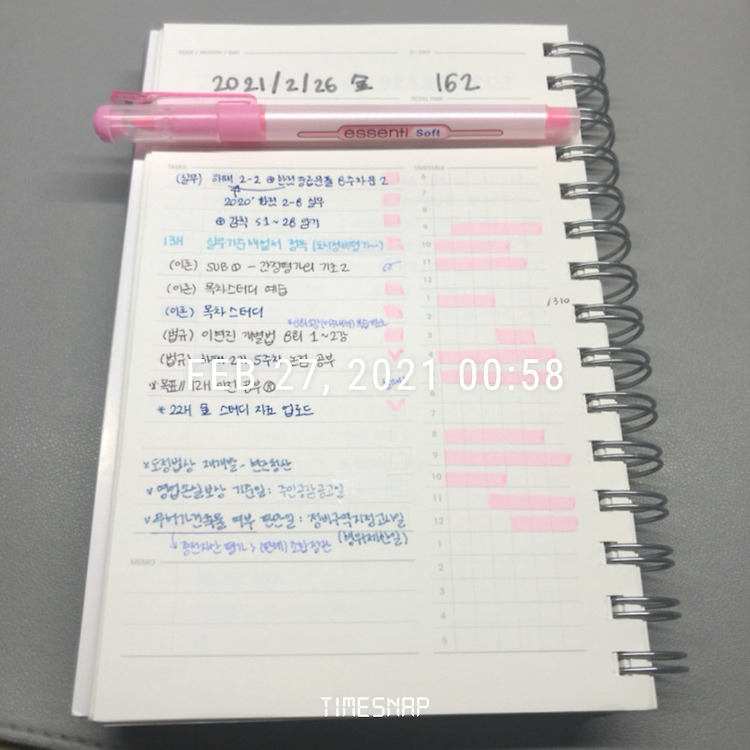 YEAR / MONTH / DAY
D-DAY
2021/2/26 금
162
TOTAL TIME
essenti Soft
TASKS
TIMETABLE
(실무) 하패 2-2 한쌤 중급문풀 6주차 문 2
2020' 한쌤 2-8 실무
S1~28 암기
13H 실무기준해설서 정독
(이론) SUB ① - 간정평가의 기초 2
(이론) 목차스터디 예습
(이론) 목차스터디
(법규) 이현진 개별법 8회 1~2강
(법규) 2강 5주차 논점 공부
FEB 27, 2021 00:58
목표// 12H 이전 공부
* 22H 줌 스터디 자료 업로드
도정법상 재개발 - 현금청산
v 영업손실보상 기준일 : 주민공람공고일
v 무허가건축물 여부 판단일 : 정비구역지정고시일
(행위제한일)
종전자산 평가
MEMO
6
7
8
9
10
11
12
1
1310
2
3
4
6
7
8
9
10
11
12
1
2
3
4
5
TIMESNAP